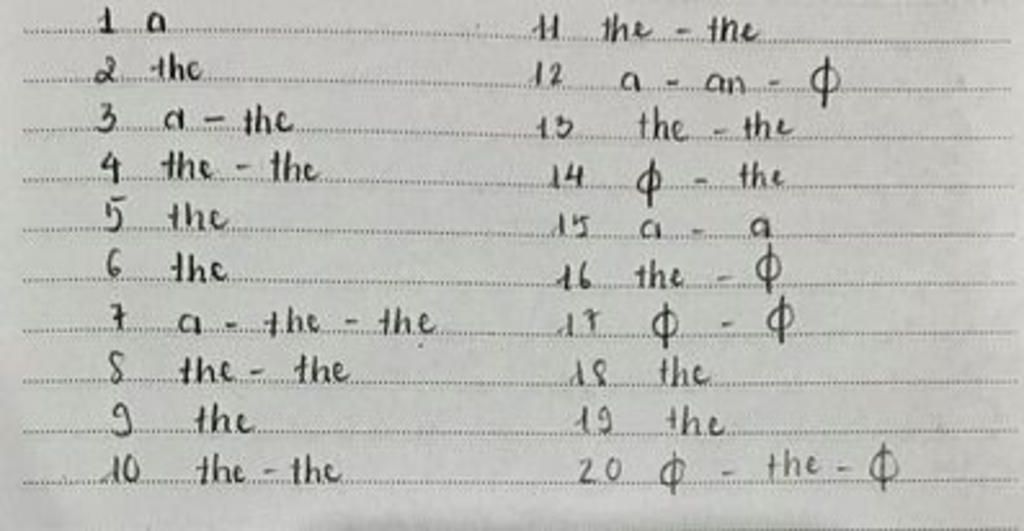 1 a
2 the
3 a - the
4 the - the
5 the
6 the
7 a - the - the
8 the - the
9 the
10 the - the
11 the - the
12 a - an - ϕ
13 the - the
14 ϕ - the
15 a - a
16 the - ϕ
17 ϕ - ϕ
18 the
19 the
20 ϕ - the - ϕ